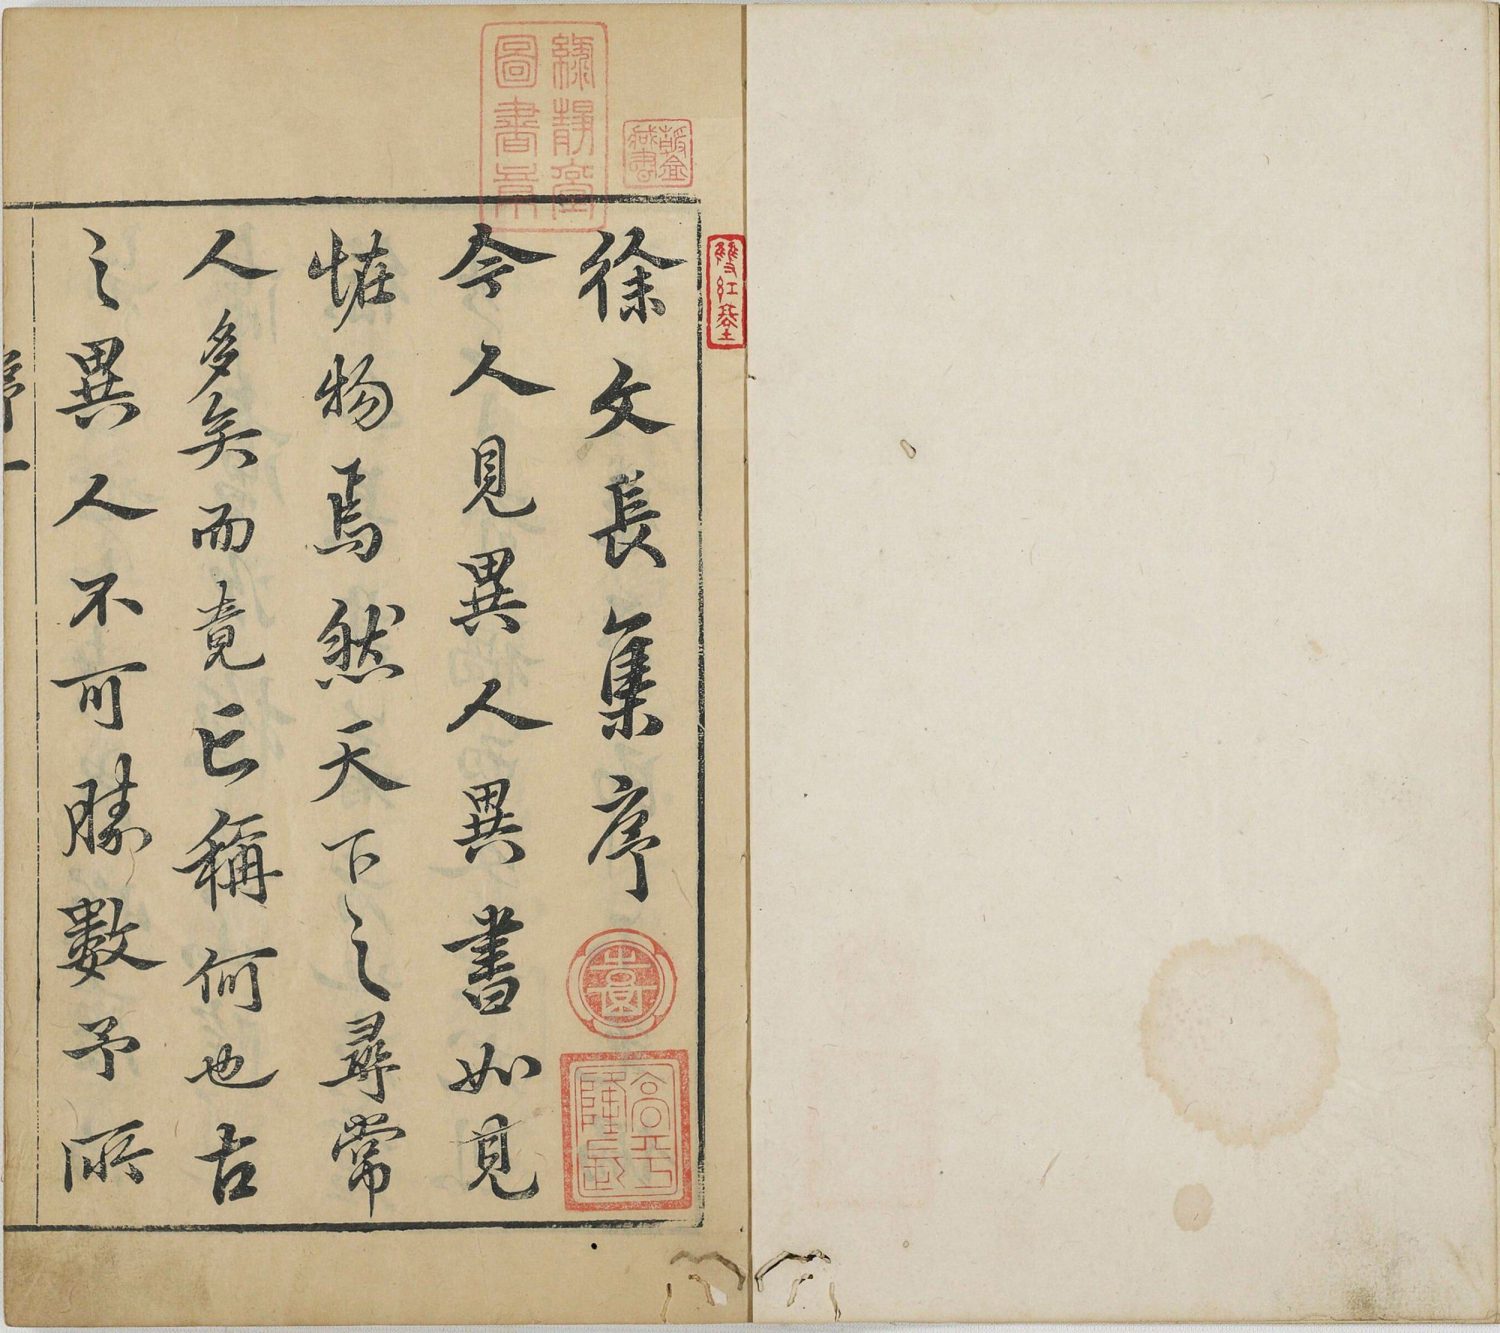 徐文長集序
今人見異人異書如見
恠物焉然天下之尋常
人多矣而竟已稱何也古
之異人不可勝數予所
序 一
雙紅堂
圖書